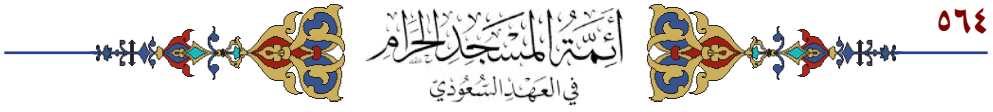 ٥٦٤
أَئِمَّةُ المَسْجِدِ الحَرَامِ
في العَهْدِ السُّعُودِيّ